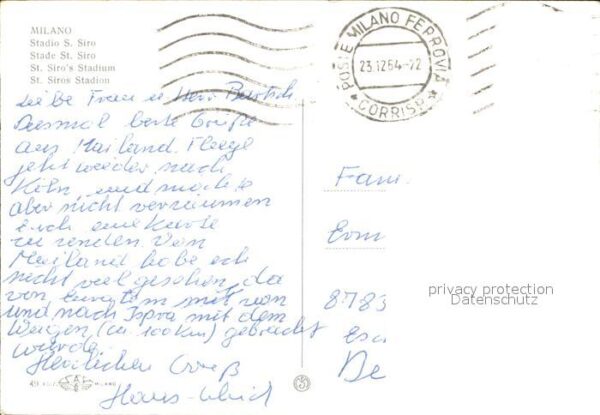 MILANO
Stadio S. Siro
Stade St. Siro
St. Siro's Stadium
St. Siros Stadion
POSTE MILANO FERROVIA
23.12.64-22
CORRISP
Liebe Frau u Herr
Diesmal beste Grüße
aus Mailand. Fliege
jetzt wieder nach
Köln, und möchte
aber nicht versäumen
Euch eine Karte
zu senden. Von
Mailand habe ich
nicht viel gesehen, da
von mit
und nach Ispra mit dem
Wagen (ca. 100 km) gebracht
wurde.
Herzlichen Gruß
Hans-Ulrich
Fam.
8783
De
privacy protection
Datenschutz
SAF
MILANO